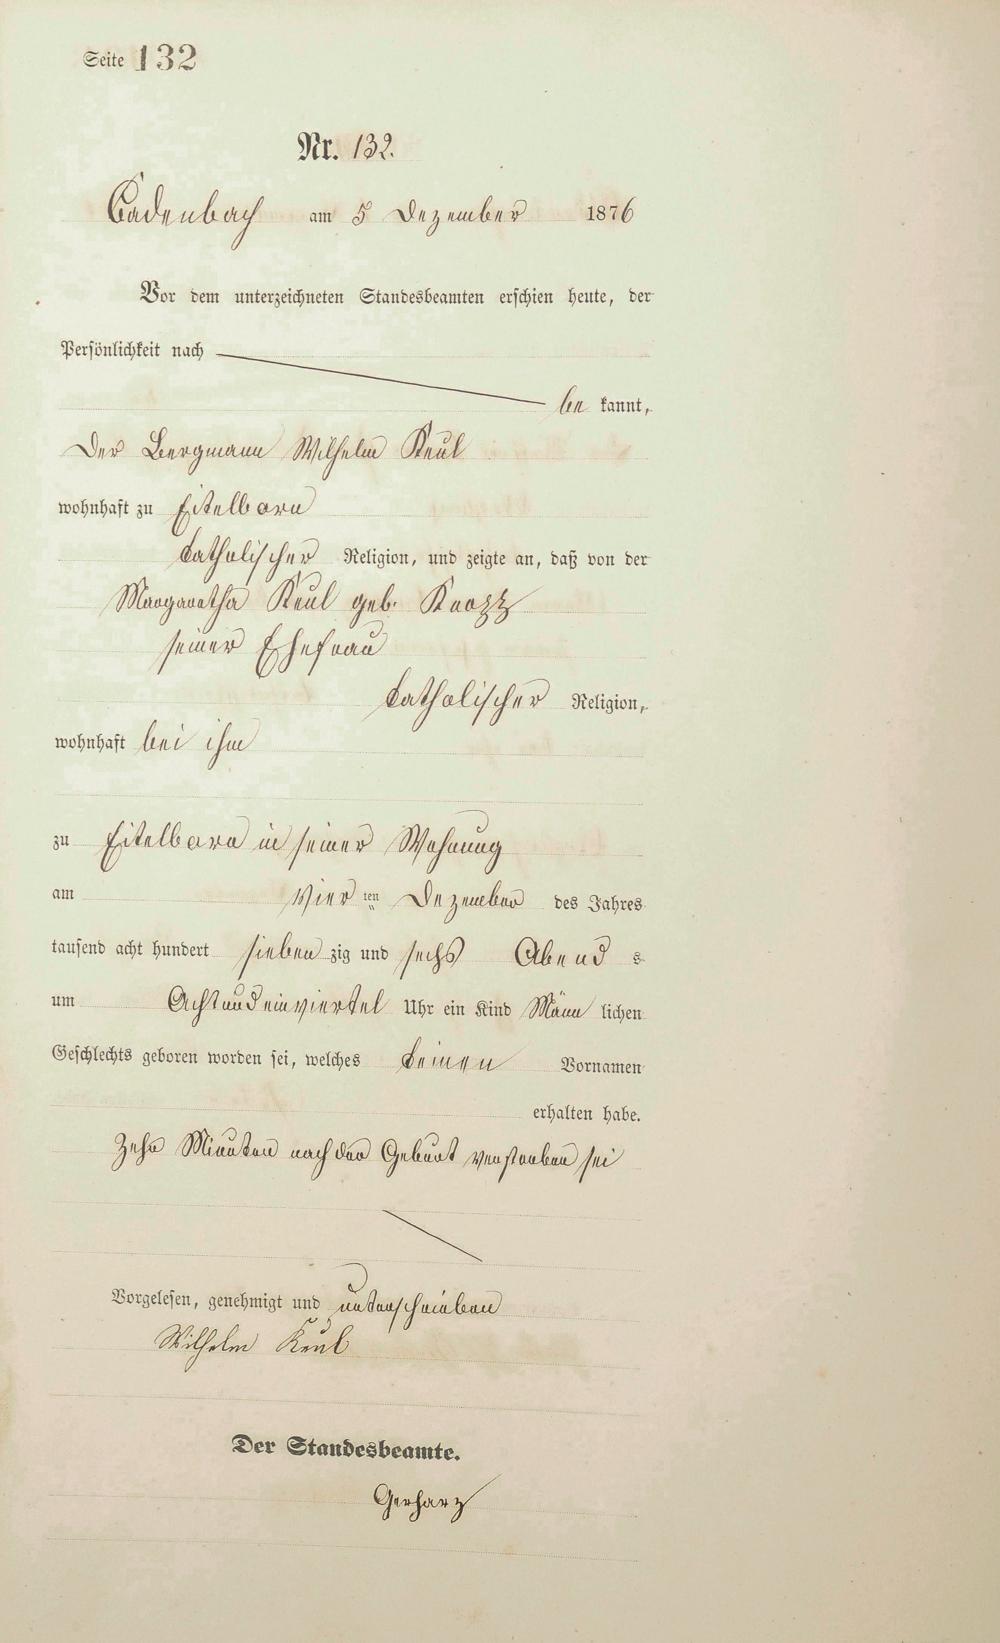 Seite 132
Nr. 132.
Cadenbach am 5 Dezember 1876
Vor dem unterzeichneten Standesbeamten erschien heute, der
Persönlichkeit nach
be kannt,
Der Bergmann Wilhelm Keul
wohnhaft zu Eitelborn
katholischer Religion, und zeigte an, daß von der
Margaretha Keul geb.
seiner Ehefrau
katholischer Religion,
wohnhaft bei ihm
zu Eitelborn in seiner Wohnung
am Vier ten Dezember des Jahres
tausend acht hundert sieben zig und sechs Abend s
um Acht und einviertel Uhr ein Kind Männ lichen
Geschlechts geboren worden sei, welches keinen Vornamen
erhalten habe.
Zehn Minuten nach der Geburt verstorben sei
Vorgelesen, genehmigt und unterschrieben
Wilhelm Keul
Der Standesbeamte.
Gerharz